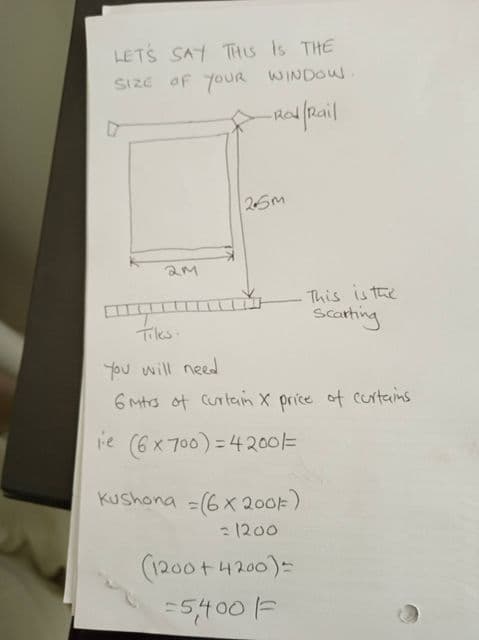 LET'S SAY THIS IS THE
SIZE OF YOUR WINDOW.
Rod/Rail
2.5M
2M
This is the
Scarting
Tiles.
You will need
6 Mtrs of curtain X price of curtains
i.e (6 x 700) = 4200/=
Kushona = (6 X 200/=)
= 1200
(1200 + 4200) =
= 5,400/=